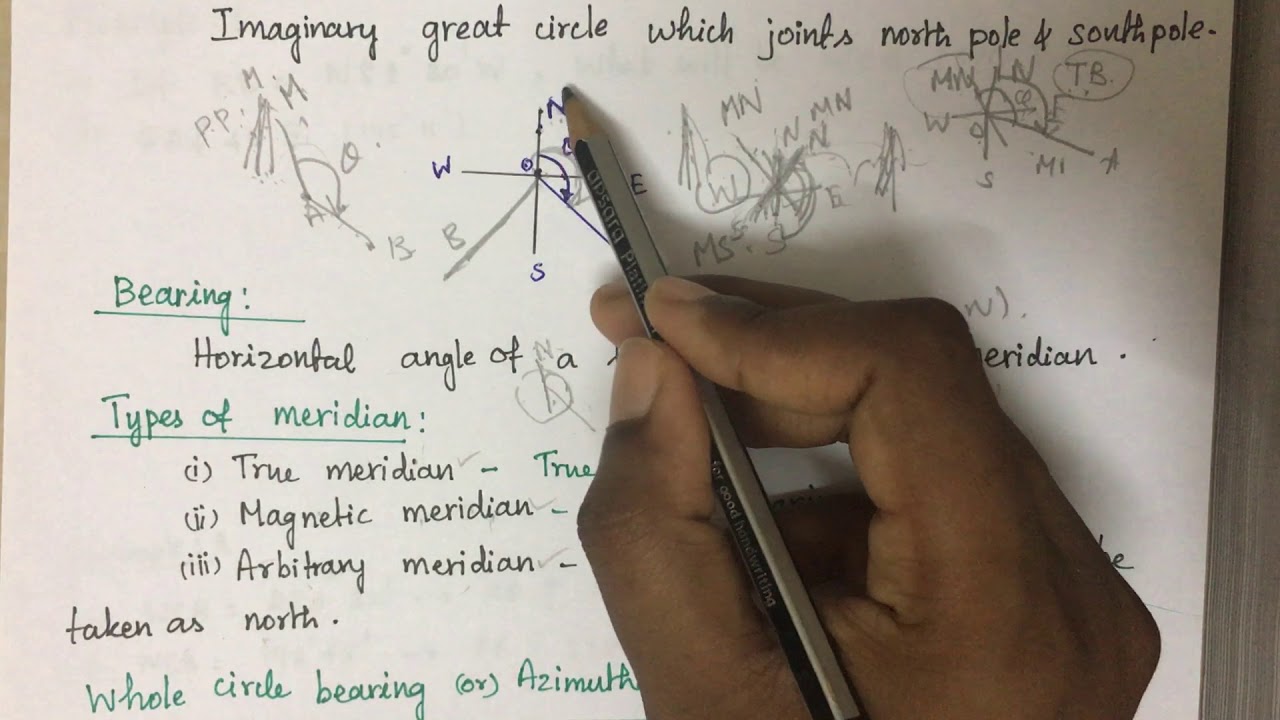 Imaginary great circle which joints north pole & southpole.
M M MN MN MN N T.B.
P.P. θ N N N W E
W O E W E S M1 A
A B B MS S S
S
Bearing:
N).
Horizontal angle of a meridian.
N
Types of meridian:
(i) True meridian - True
(ii) Magnetic meridian -
(iii) Arbitrary meridian -
taken as north.
Whole circle bearing (or) Azimuth
apsara Platin
for good handwriting